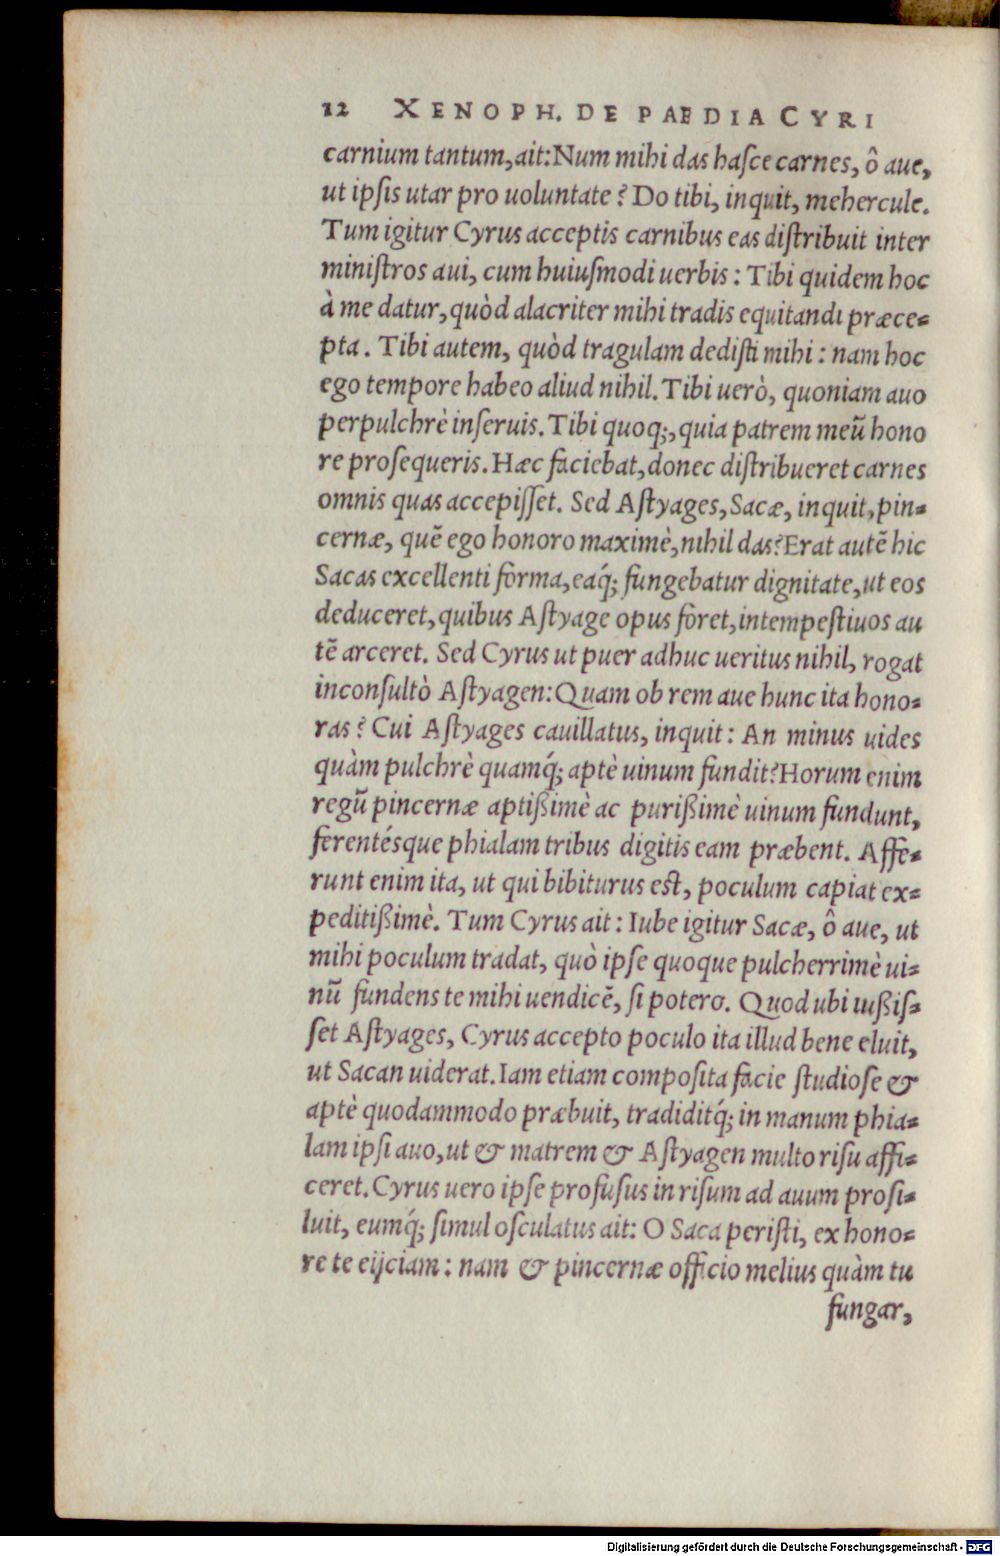 12 XENOPH. DE PAEDIA CYRI
carnium tantum, ait: Num mihi das haſce carnes, ô aue,
ut ipſis utar pro uoluntate? Do tibi, inquit, mehercule.
Tum igitur Cyrus acceptis carnibus eas diſtribuit inter
miniſtros aui, cum huiuſmodi uerbis: Tibi quidem hoc
à me datur, quòd alacriter mihi tradis equitandi præce-
pta. Tibi autem, quòd tragulam dediſti mihi: nam hoc
ego tempore habeo aliud nihil. Tibi uerò, quoniam auo
perpulchrè inſeruis. Tibi quoq;, quia patrem meũ hono
re proſequeris. Hæc faciebat, donec diſtribueret carnes
omnis quas accepiſſet. Sed Aſtyages, Sacæ, inquit, pin-
cernæ, quẽ ego honoro maximè, nihil das? Erat autẽ hic
Sacas excellenti forma, eaq́; fungebatur dignitate, ut eos
deduceret, quibus Aſtyage opus foret, intempeſtiuos au
tẽ arceret. Sed Cyrus ut puer adhuc ueritus nihil, rogat
inconſultò Aſtyagen: Quam ob rem aue hunc ita hono-
ras? Cui Aſtyages cauillatus, inquit: An minus uides
quàm pulchrè quamq́; aptè uinum fundit? Horum enim
regũ pincernæ aptißimè ac purißimè uinum fundunt,
ferentésque phialam tribus digitis eam præbent. Affe-
runt enim ita, ut qui bibiturus eſt, poculum capiat ex-
peditißimè. Tum Cyrus ait: Iube igitur Sacæ, ô aue, ut
mihi poculum tradat, quò ipſe quoque pulcherrimè ui-
nũ fundens te mihi uendicẽ, ſi potero. Quod ubi iußiſ-
ſet Aſtyages, Cyrus accepto poculo ita illud bene eluit,
ut Sacan uiderat. Iam etiam compoſita facie ſtudioſe &
aptè quodammodo præbuit, tradiditq́; in manum phia-
lam ipſi auo, ut & matrem & Aſtyagen multo riſu affi-
ceret. Cyrus uero ipſe profuſus in riſum ad auum proſi-
luit, eumq́; ſimul oſculatus ait: O Saca periſti, ex hono-
re te eijciam: nam & pincernæ officio melius quàm tu
fungar,
Digitalisierung gefördert durch die Deutsche Forschungsgemeinschaft - DFG